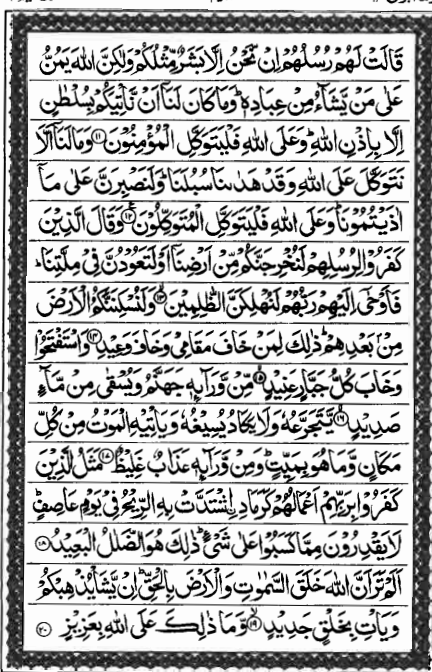 قَالَتْ لَهُمْ رُسُلُهُمْ اِنْ نَّحْنُ اِلَّا بَشَرٌ مِّثْلُكُمْ وَلٰكِنَّ اللّٰهَ يَمُنُّ
عَلٰى مَنْ يَّشَآءُ مِنْ عِبَادِهٖ ؕ وَمَا كَانَ لَنَاۤ اَنْ نَّاْتِيَكُمْ بِسُلْطٰنٍ
اِلَّا بِاِذْنِ اللّٰهِ ؕ وَعَلَى اللّٰهِ فَلْيَتَوَكَّلِ الْمُؤْمِنُوْنَ ۝۱۱ وَمَا لَنَاۤ اَلَّا
نَتَوَكَّلَ عَلَى اللّٰهِ وَقَدْ هَدٰىنَا سُبُلَنَا ؕ وَلَنَصْبِرَنَّ عَلٰى مَاۤ
اٰذَيْتُمُوْنَا ؕ وَعَلَى اللّٰهِ فَلْيَتَوَكَّلِ الْمُتَوَكِّلُوْنَ ۝۱۲ وَقَالَ الَّذِيْنَ
كَفَرُوْا لِرُسُلِهِمْ لَنُخْرِجَنَّكُمْ مِّنْ اَرْضِنَاۤ اَوْ لَتَعُوْدُنَّ فِيْ مِلَّتِنَا ؕ
فَاَوْحٰۤى اِلَيْهِمْ رَبُّهُمْ لَنُهْلِكَنَّ الظّٰلِمِيْنَ ۝۱۳ وَلَنُسْكِنَنَّكُمُ الْاَرْضَ
مِنْۢ بَعْدِهِمْ ؕ ذٰلِكَ لِمَنْ خَافَ مَقَامِيْ وَخَافَ وَعِيْدِ ۝۱۴ وَاسْتَفْتَحُوْا
وَخَابَ كُلُّ جَبَّارٍ عَنِيْدٍ ۝۱۵ مِّنْ وَّرَآئِهٖ جَهَنَّمُ وَيُسْقٰى مِنْ مَّآءٍ
صَدِيْدٍ ۝۱۶ يَّتَجَرَّعُهٗ وَلَا يَكَادُ يُسِيْغُهٗ وَيَاْتِيْهِ الْمَوْتُ مِنْ كُلِّ
مَكَانٍ وَّمَا هُوَ بِمَيِّتٍ ؕ وَمِنْ وَّرَآئِهٖ عَذَابٌ غَلِيْظٌ ۝۱۷ مَثَلُ الَّذِيْنَ
كَفَرُوْا بِرَبِّهِمْ اَعْمَالُهُمْ كَرَمَادِ ۨاشْتَدَّتْ بِهِ الرِّيْحُ فِيْ يَوْمٍ عَاصِفٍ ؕ
لَا يَقْدِرُوْنَ مِمَّا كَسَبُوْا عَلٰى شَيْءٍ ؕ ذٰلِكَ هُوَ الضَّلٰلُ الْبَعِيْدُ ۝۱۸
اَلَمْ تَرَ اَنَّ اللّٰهَ خَلَقَ السَّمٰوٰتِ وَالْاَرْضَ بِالْحَقِّ ؕ اِنْ يَّشَاْ يُذْهِبْكُمْ
وَيَاْتِ بِخَلْقٍ جَدِيْدٍ ۝۱۹ وَّمَا ذٰلِكَ عَلَى اللّٰهِ بِعَزِيْزٍ ۝۲۰